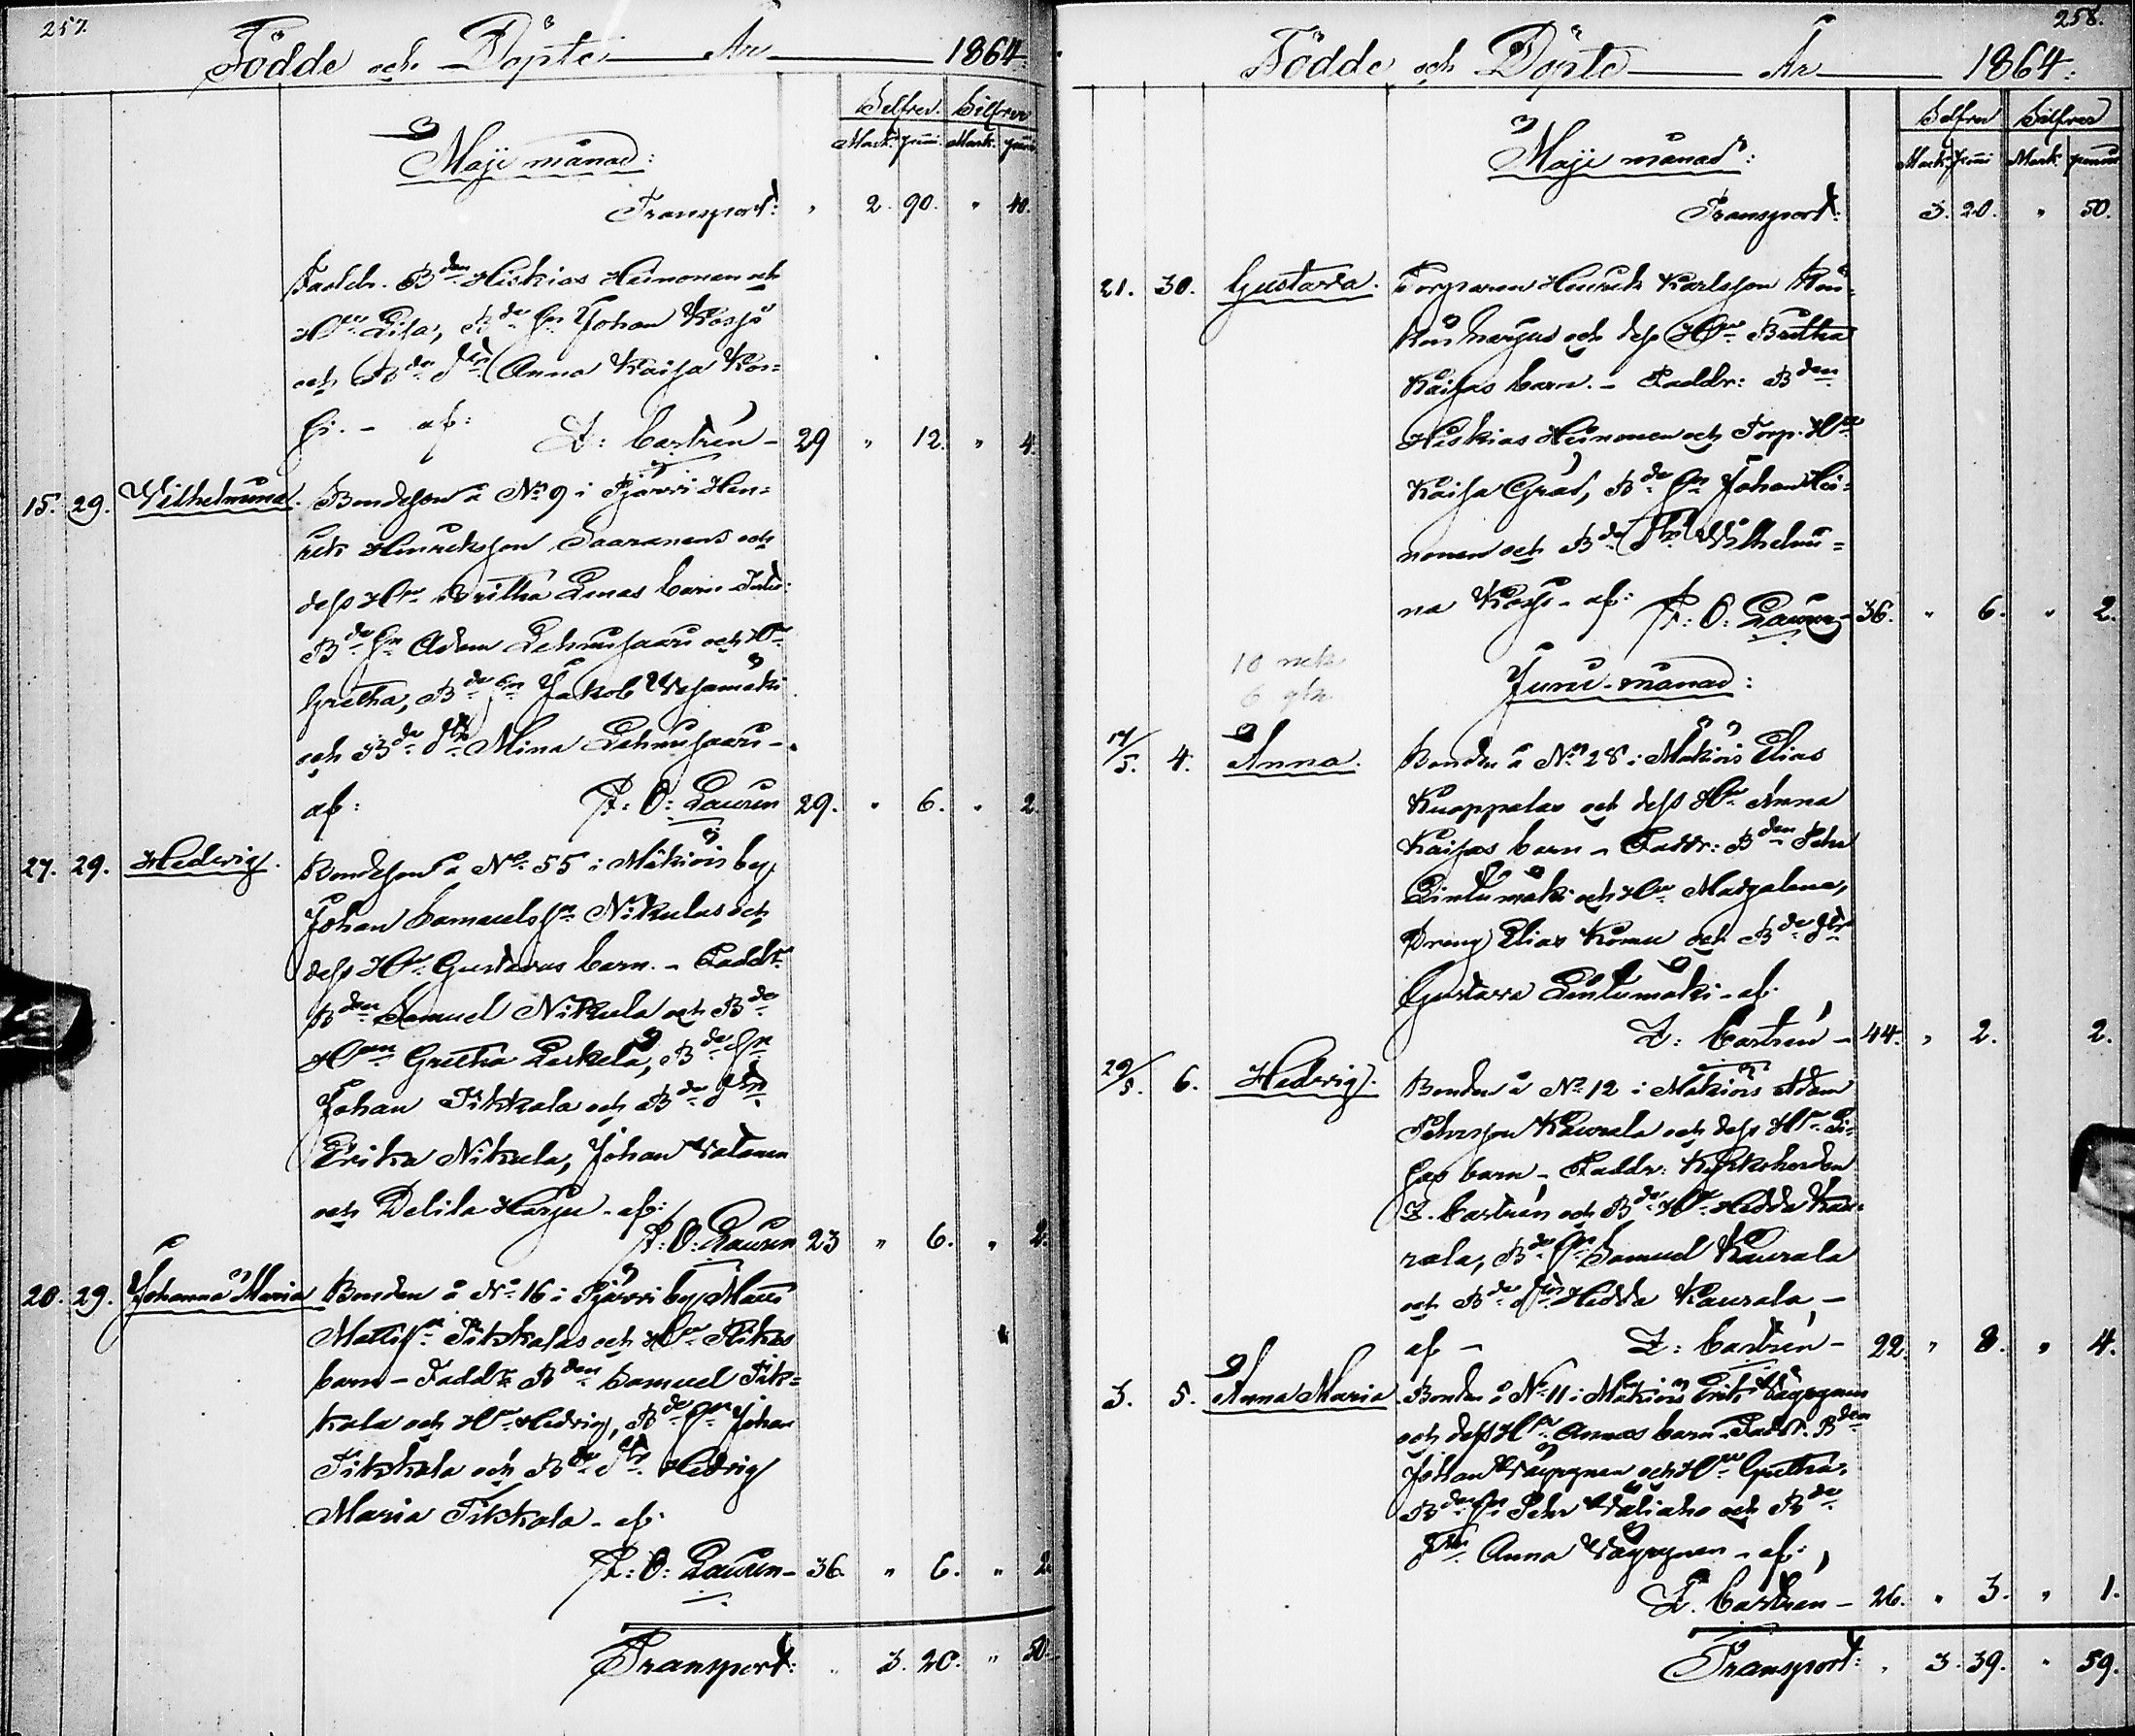 257.
Födde och Döpte År 1864.
Silfver. Silfver
Mark. penni. Mark. penni
Maji månad:
Transport: " 2. 90. " 40.
Faddr. Bden Hiskias Heinonen och
Hru Lisa, Bde Sn Johan Koski
och Bde Dtr Anna Kaisa Kos=
ki. - af: Z: Castrén - 29 " 12. " 4.
15. 29. Wilhelmina. Bondeson å No 9 i Pjärvi Hen=
rik Henriksson Saaranens och
dess Hru Britha Lenas barn
Bde Sn Adam Lehmusaari och Hru
Gretha, Bde Sn Jakob
och Bde Dtr Mina Lehmusaari -
af: F: O: Lauren 29. " 6. " 2.
27. 29. Hedvig. Bondeson å No 55 i Mäkiöis by
Johan Samuelsson Nikulas och
dess Hru Gustavas barn. - Faddr
Bden Samuel Nikula och Bde
Hrun Gretha Leskelä, Bde Sn
Johan Tikkala och Bde Dtr
Erika Nikula, Johan Vatanen
och Delila Harju - af:
F: O: Lauren 23 " 6. " 2.
20. 29. Johanna Maria Bonden å No 16 i Pjärvi by Matts
Mattsn Tikkalas och Hru Fikas
barn - Faddr. Bden Samuel Tik=
kala och Hru Hedvig, Bde Sn Johan
Tikkala och Bde Dtr Hedvig
Maria Tikkala - af:
F: O: Lauren - 36. " 6. " 2.
Transport: " 3. 20. " 50.
258.
Födde och Döpte År 1864:
Silfver Silfver
Mark penni Mark: penni
Maji månad:
Transport: 3. 20. " 50.
21. 30. Gustava. Torparen Henrik Karlsson
harjus och dess Hru Britha
Kaisas barn. - Faddr: Bden
Hiskias Heinonen och Torp. Hru
Kaisa Gråd, Bde Sn Johan Hei=
nonen och Bde Dtr Wilhelmi=
na Koski - af: F: O: Lauren - 36. " 6. " 2.
10 mk
6 qk
Juni-månad:
17/5. 4. Anna. Bonden å No 28 i Mäkiöis Elias
Kuoppalas och dess Hru Anna
Kaisas barn - Faddr: Bden Pehr
Lintumäki och Hru Magalena,
Dreng Elias Komu och Bde Dtr
Gustava Lintumäki - af:
Z: Castrén - 44. " 2. 2.
29/5. 6. Hedvig. Bonden å No 12 i Mäkiöis Adam
Pehrsson Kaurala och dess Hru Li=
sas barn - Faddr: Kyrkoherden
Z. Castrén och Bde Hru Hedda Kau=
rala, Bde Sn Samuel Kaurala
och Bde Dtr Hedda Kaurala, -
af - Z: Castrén - 22. " 8. " 4.
3. 5. Anna Maria Bonden å No 11 i Mäkiöis Erik Väyrynens
och dess Hru Annas barn. Faddr. Bden
Johan Väyrynen och Hru Gretha,
Bde Sn Pehr Väliaho och Bde
Dtr Anna Väyrynen - af:
Z. Castrén - 26. " 3. " 1.
Transport: " 3. 39. " 59.